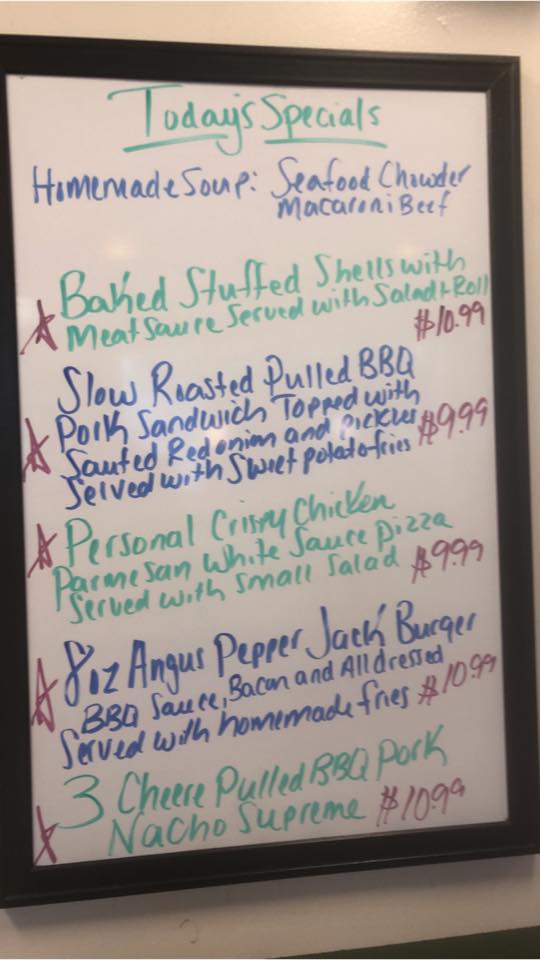 Today's Specials
Homemade Soup: Seafood Chowder
Macaroni Beef
Baked Stuffed Shells with
Meat Sauce Served with Salad + Roll
$10.99
Slow Roasted Pulled BBQ
Pork Sandwich Topped with
Sauted Red onion and pickles $9.99
Served with Sweet potato fries
Personal Crispy Chicken
Parmesan White Sauce Pizza
Served with small Salad $9.99
8oz Angus Pepper Jack Burger
BBQ Sauce, Bacon and All dressed
Served with homemade fries $10.99
3 Cheese Pulled BBQ Pork
Nacho Supreme $10.99